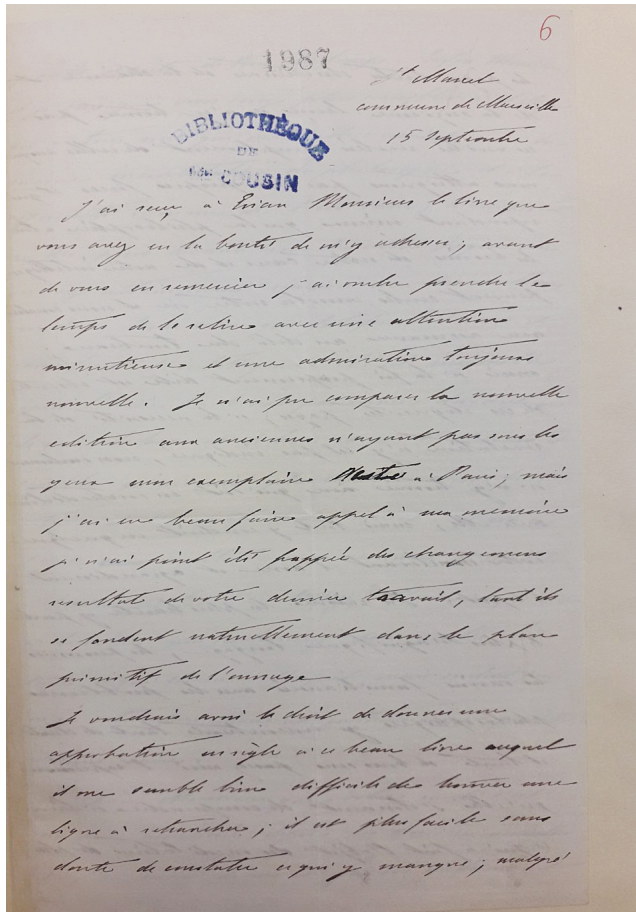 6
1987
St Marcel
commune de Marseille
15 Septembre
BIBLIOTHÈQUE
DE
COUSIN
J'ai reçu à Evian Monsieur le livre que
vous avez eu la bonté de m'y adresser ; avant
de vous en remercier j'ai voulu prendre le
temps de le relire avec une attention
minutieuse et une admiration toujours
nouvelle. Je n'ai pu comparer la nouvelle
edition aux anciennes n'ayant pas sous les
yeux mon exemplaire resté à Paris ; mais
j'ai eu beau faire appel à ma memoire
je n'ai point été frappée des changemens
resultat de votre dernier travail, tant ils
se fondent naturellement dans le plan
primitif de l'ouvrage
Je voudrais avoir le droit de donner une
approbation en règle à ce beau livre auquel
il me semble bien difficile de trouver une
ligne à retrancher ; il est plus facile sans
doute de constater ce qui y manque ; malgré